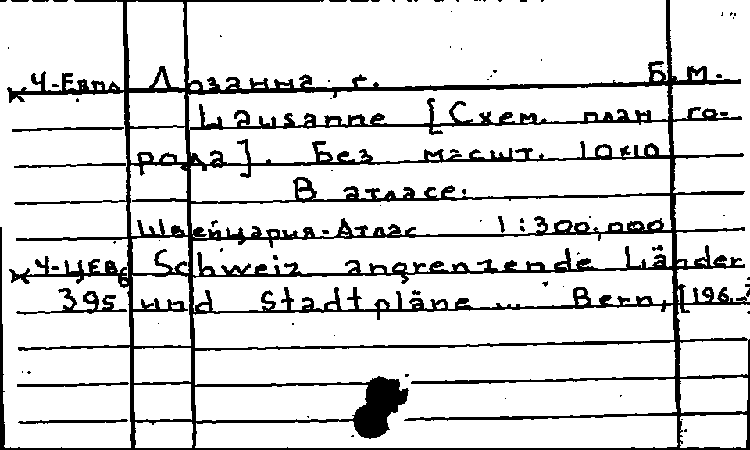 Ч-Евпа Лозанна, г. Б.м.
Lausanne [Схем. план го-
рода]. Без масшт. 10×10
В атласе:
Швейцария-Атлас 1:300,000
Ч-ЦЕВб Schweiz angrenzende Länder
395 und Stadtpläne ... Bern, [196-